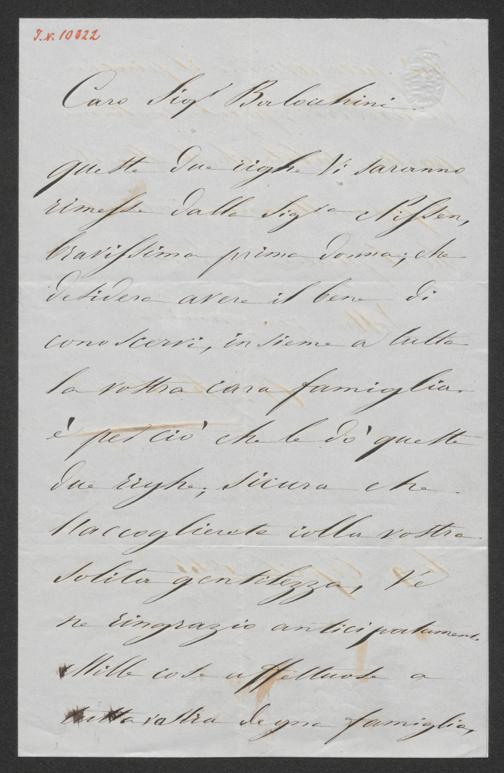 I.N. 10822
Caro Sigr Berlocchini
queste due righe Vi saranno
rimesse dalla Sigra Nissen,
bravissima prima donna; che
desidera avere il bene di
conoscervi, insieme a tutta
la vostra cara famiglia.
è per ciò che le do' queste
due righe, sicura che
l'accoglierete colla vostra
solita gentilezza, Ve
ne ringrazio anticipatamente
Mille cose affettuose a
tutta vostra degna famiglia,